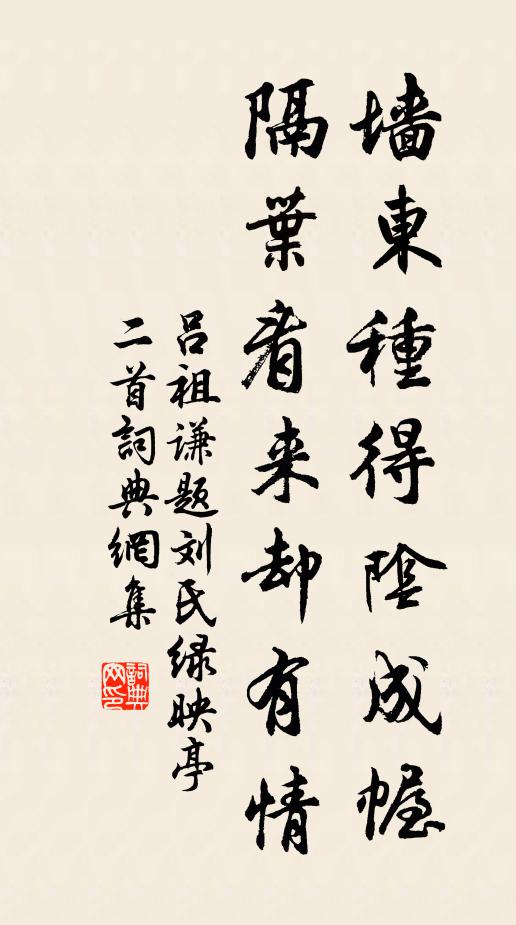 墙東種得陰成幄
隔葉看来却有情
吕祖谦题刘氏绿映亭
二首詞典網集
詞典网印